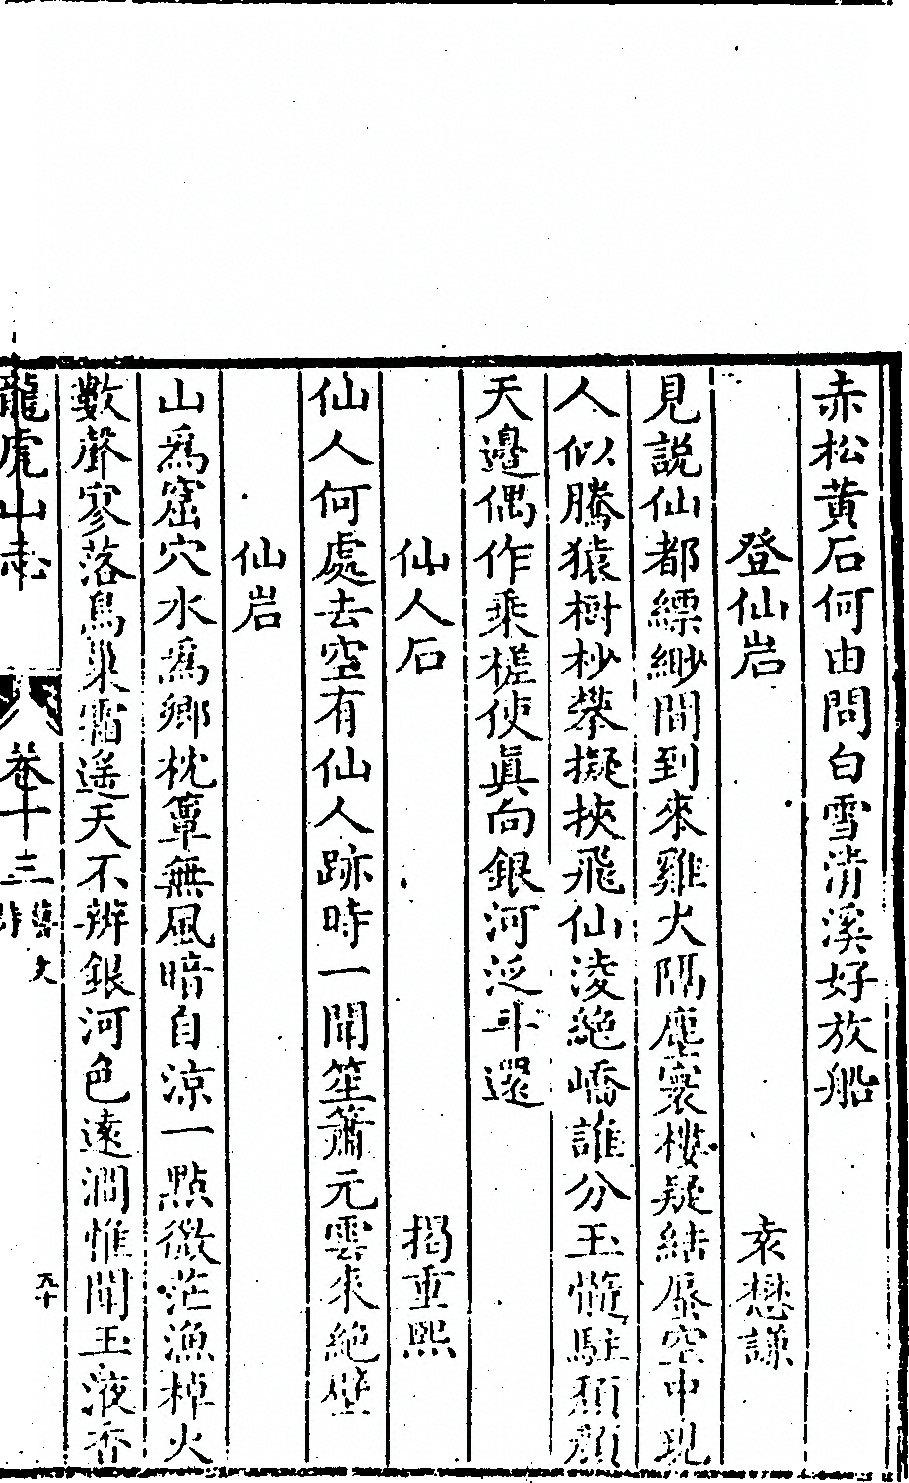 赤松黄石何由問白雪清溪好放船
登仙岩 袁懋謙
見説仙都縹緲間到來雞犬隔塵寰樓疑結蜃空中現
人似騰猿樹杪攀擬挾飛仙淩絶嶠誰分玉髓駐頽顏
天邊偶作乘槎使眞向銀河泛斗還
仙人石 揭重熙
仙人何處去空有仙人跡時一聞笙簫元雲來絶壁
仙岩
山爲窟穴水爲鄉枕簟無風暗自涼一點微茫漁棹火
數聲寥落鳥巢霜遥天不辨銀河色遠澗惟聞玉液香
龍虎山志 卷十三 藝文 詩 九十